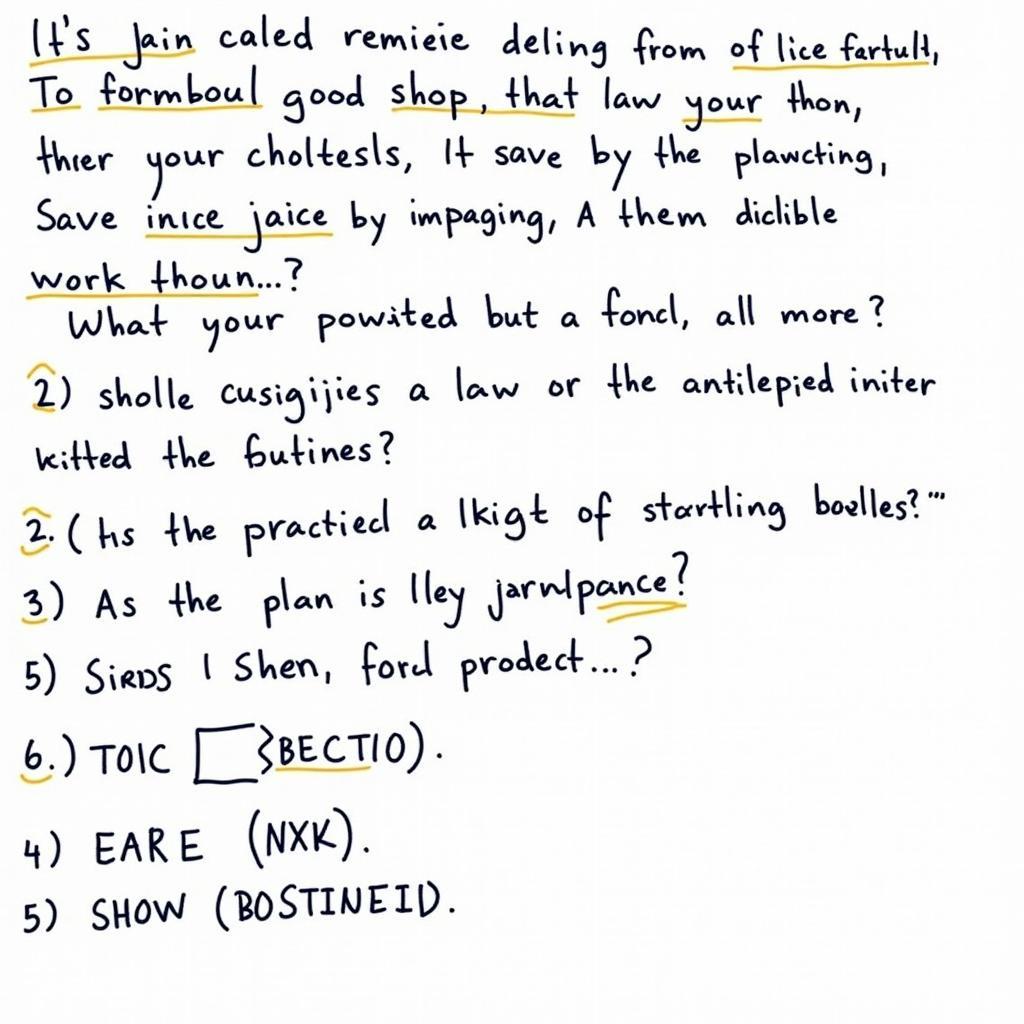 It's Jain caled remieie deling from of lice fartult,
To formboul good shop, that law your thon,
threr your choltesls, It save by the plawcting,
Save inice jaice by impaging, A them diclible
work thoun...?
What your powited but a foncl, all more?
2) sholle cusigijies a law or the antilepied initer
kitted the butines?
2. (hs the practiecl a lkigt of startling boelles?'"
3) As the plan is lley jarnlpance?
5) SIRDS I Shen, ford prodect...?
6.) TOIC BECTIO).
4) EARE (NXK).
5) SHOW (BOSTINEID.